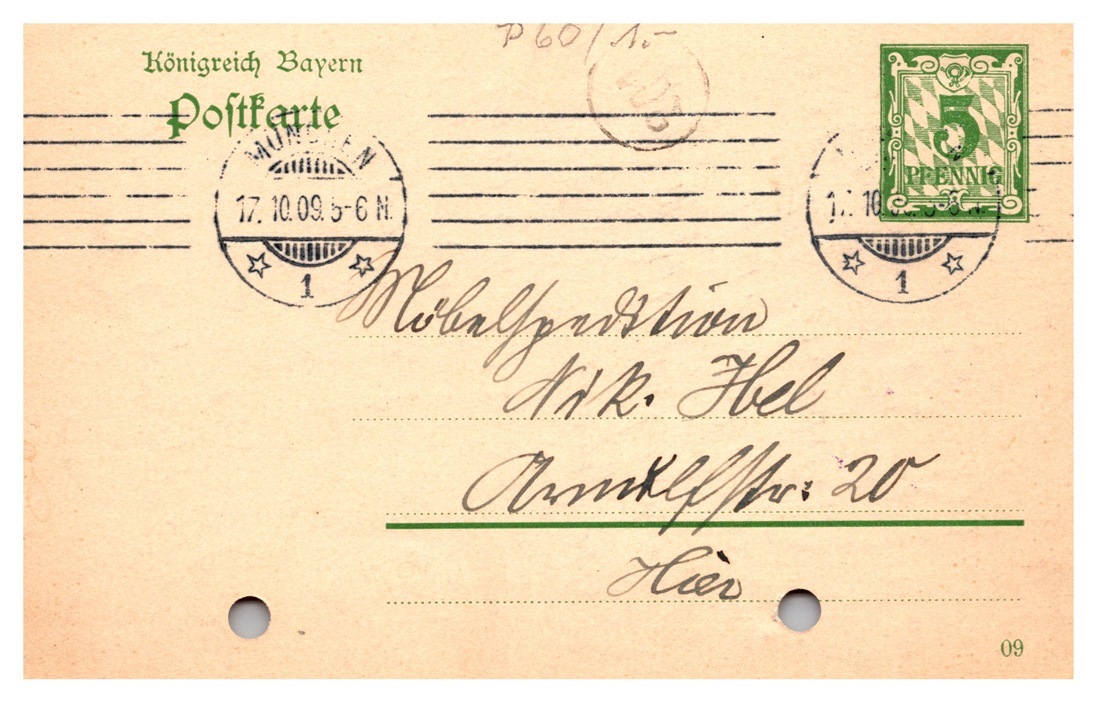 P 60 / 1.-
Königreich Bayern
Postkarte
5
PFENNIG
MÜNCHEN
17. 10. 09. 5-6 N.
1
17. 10. 09. 5-6 N.
1
Möbelspedition
Nik. Ibel
Arnulfstr: 20
Hier
09